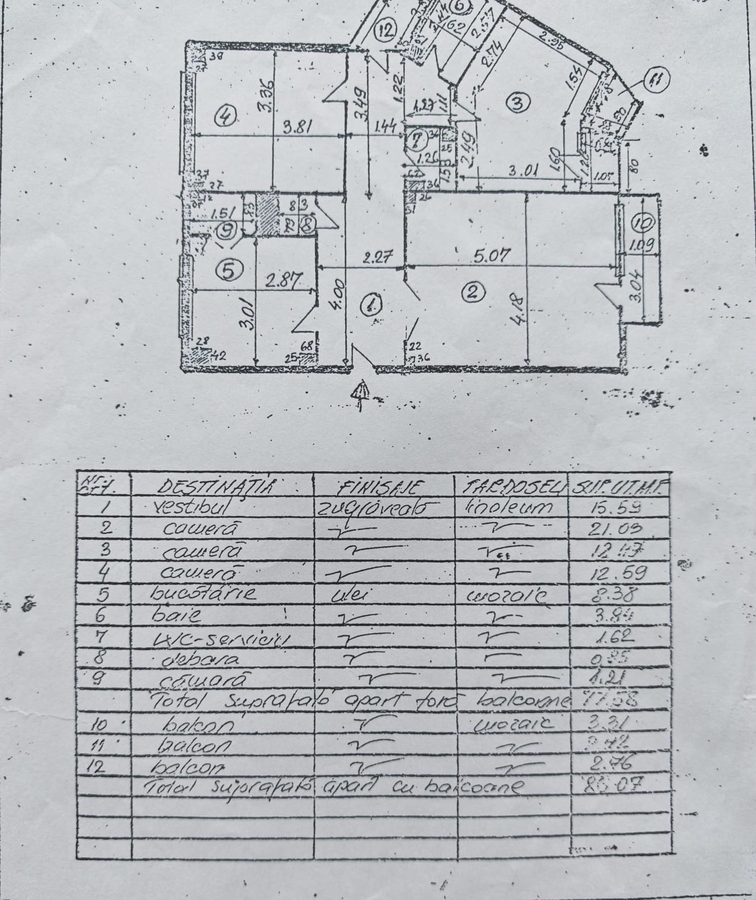 12
6
62
2.57
2.74
2.95
1.54
11
39
3.36
3.49
1.22
4
3.81
1.44
1.27
1.11
3
7
1.26
2.49
3.01
1.60
1.07
80
37
27
36
1.51
9
8
10
1.09
5
2.87
2.27
5.07
3.01
4.00
1
2
4.18
3.04
28
42
68
25
22
36
DESTINAȚIA FINISAJE PARDOSELI SUP.UT.MP.
1 vestibul zugrăveală linoleum 15.59
2 cameră 21.03
3 cameră 12.47
4 cameră 12.59
5 bucătărie ulei mozaic 8.38
6 baie 3.84
7 WC-serviciu 1.62
8 debara 0.85
9 cămară 1.21
Total Suprafață apart fără balcoane 77.58
10 balcon mozaic 3.31
11 balcon
12 balcon 2.76
Total Suprafață apart cu balcoane